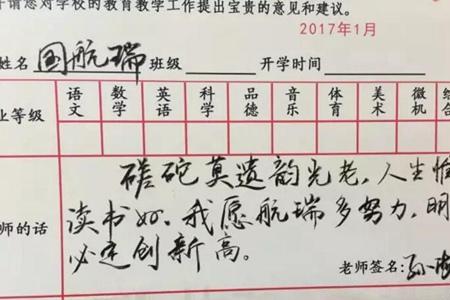 请您对学校的教育教学工作提出宝贵的意见和建议。
2017年1月
姓名 国航瑞 班级 开学时间
业等级 语文 数学 英语 科学 品德 音乐 体育 美术 微机 综合
磋砣莫遗韵光老,人生惟
师的话 读书好.我愿航瑞多努力,明
必定创新高。
老师签名:孙